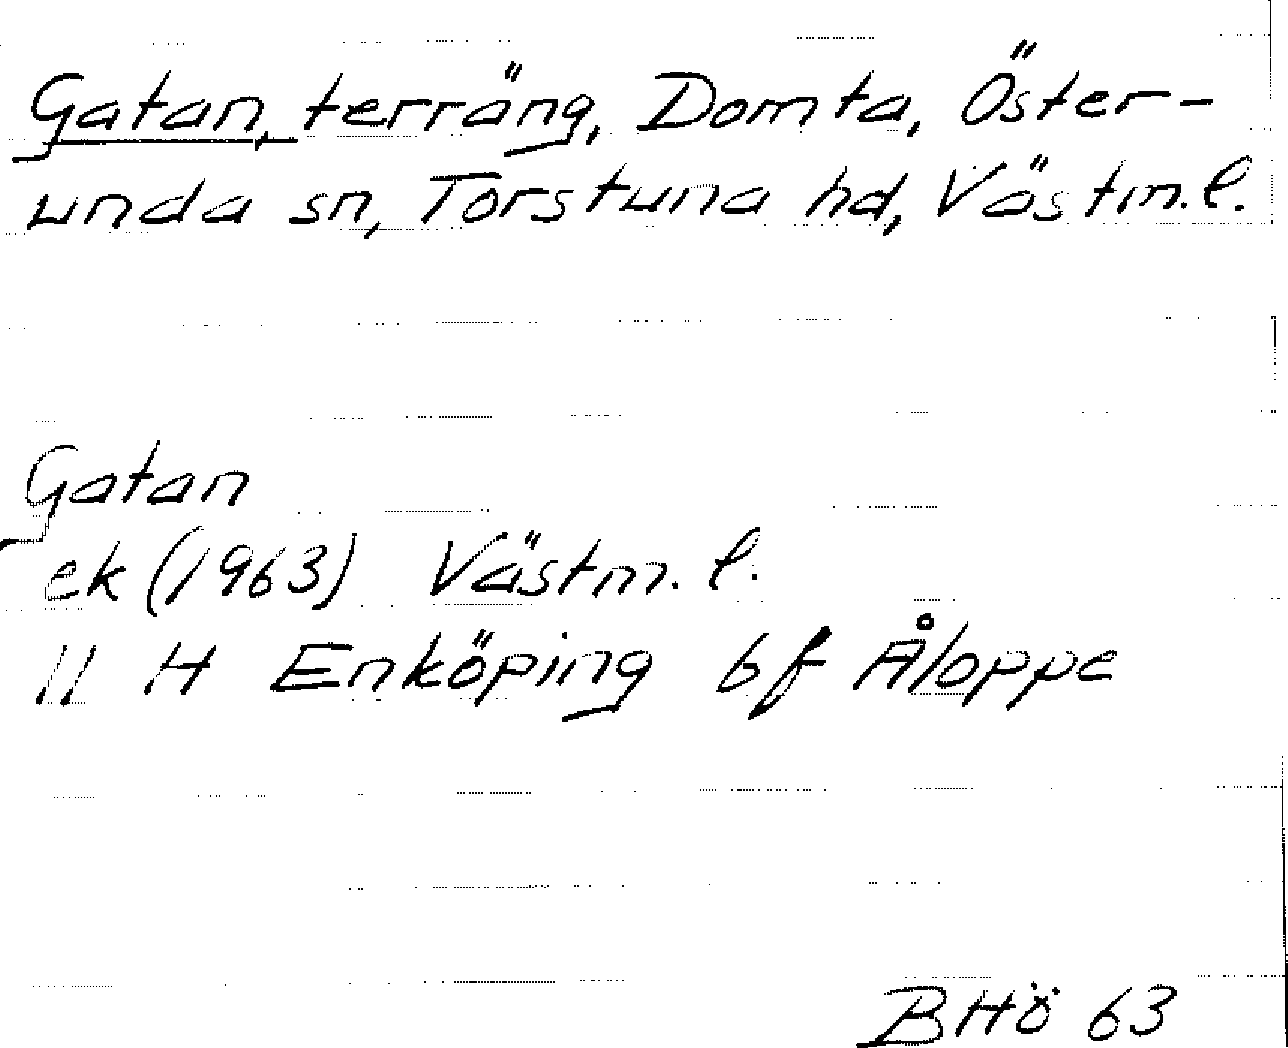 Gatan, terräng, Domta, Öster-
unda sn, Torstuna hd, Västm.l.
Gatan
ek (1963) Västm. l.
11 H Enköping bf Åloppe
BHö 63